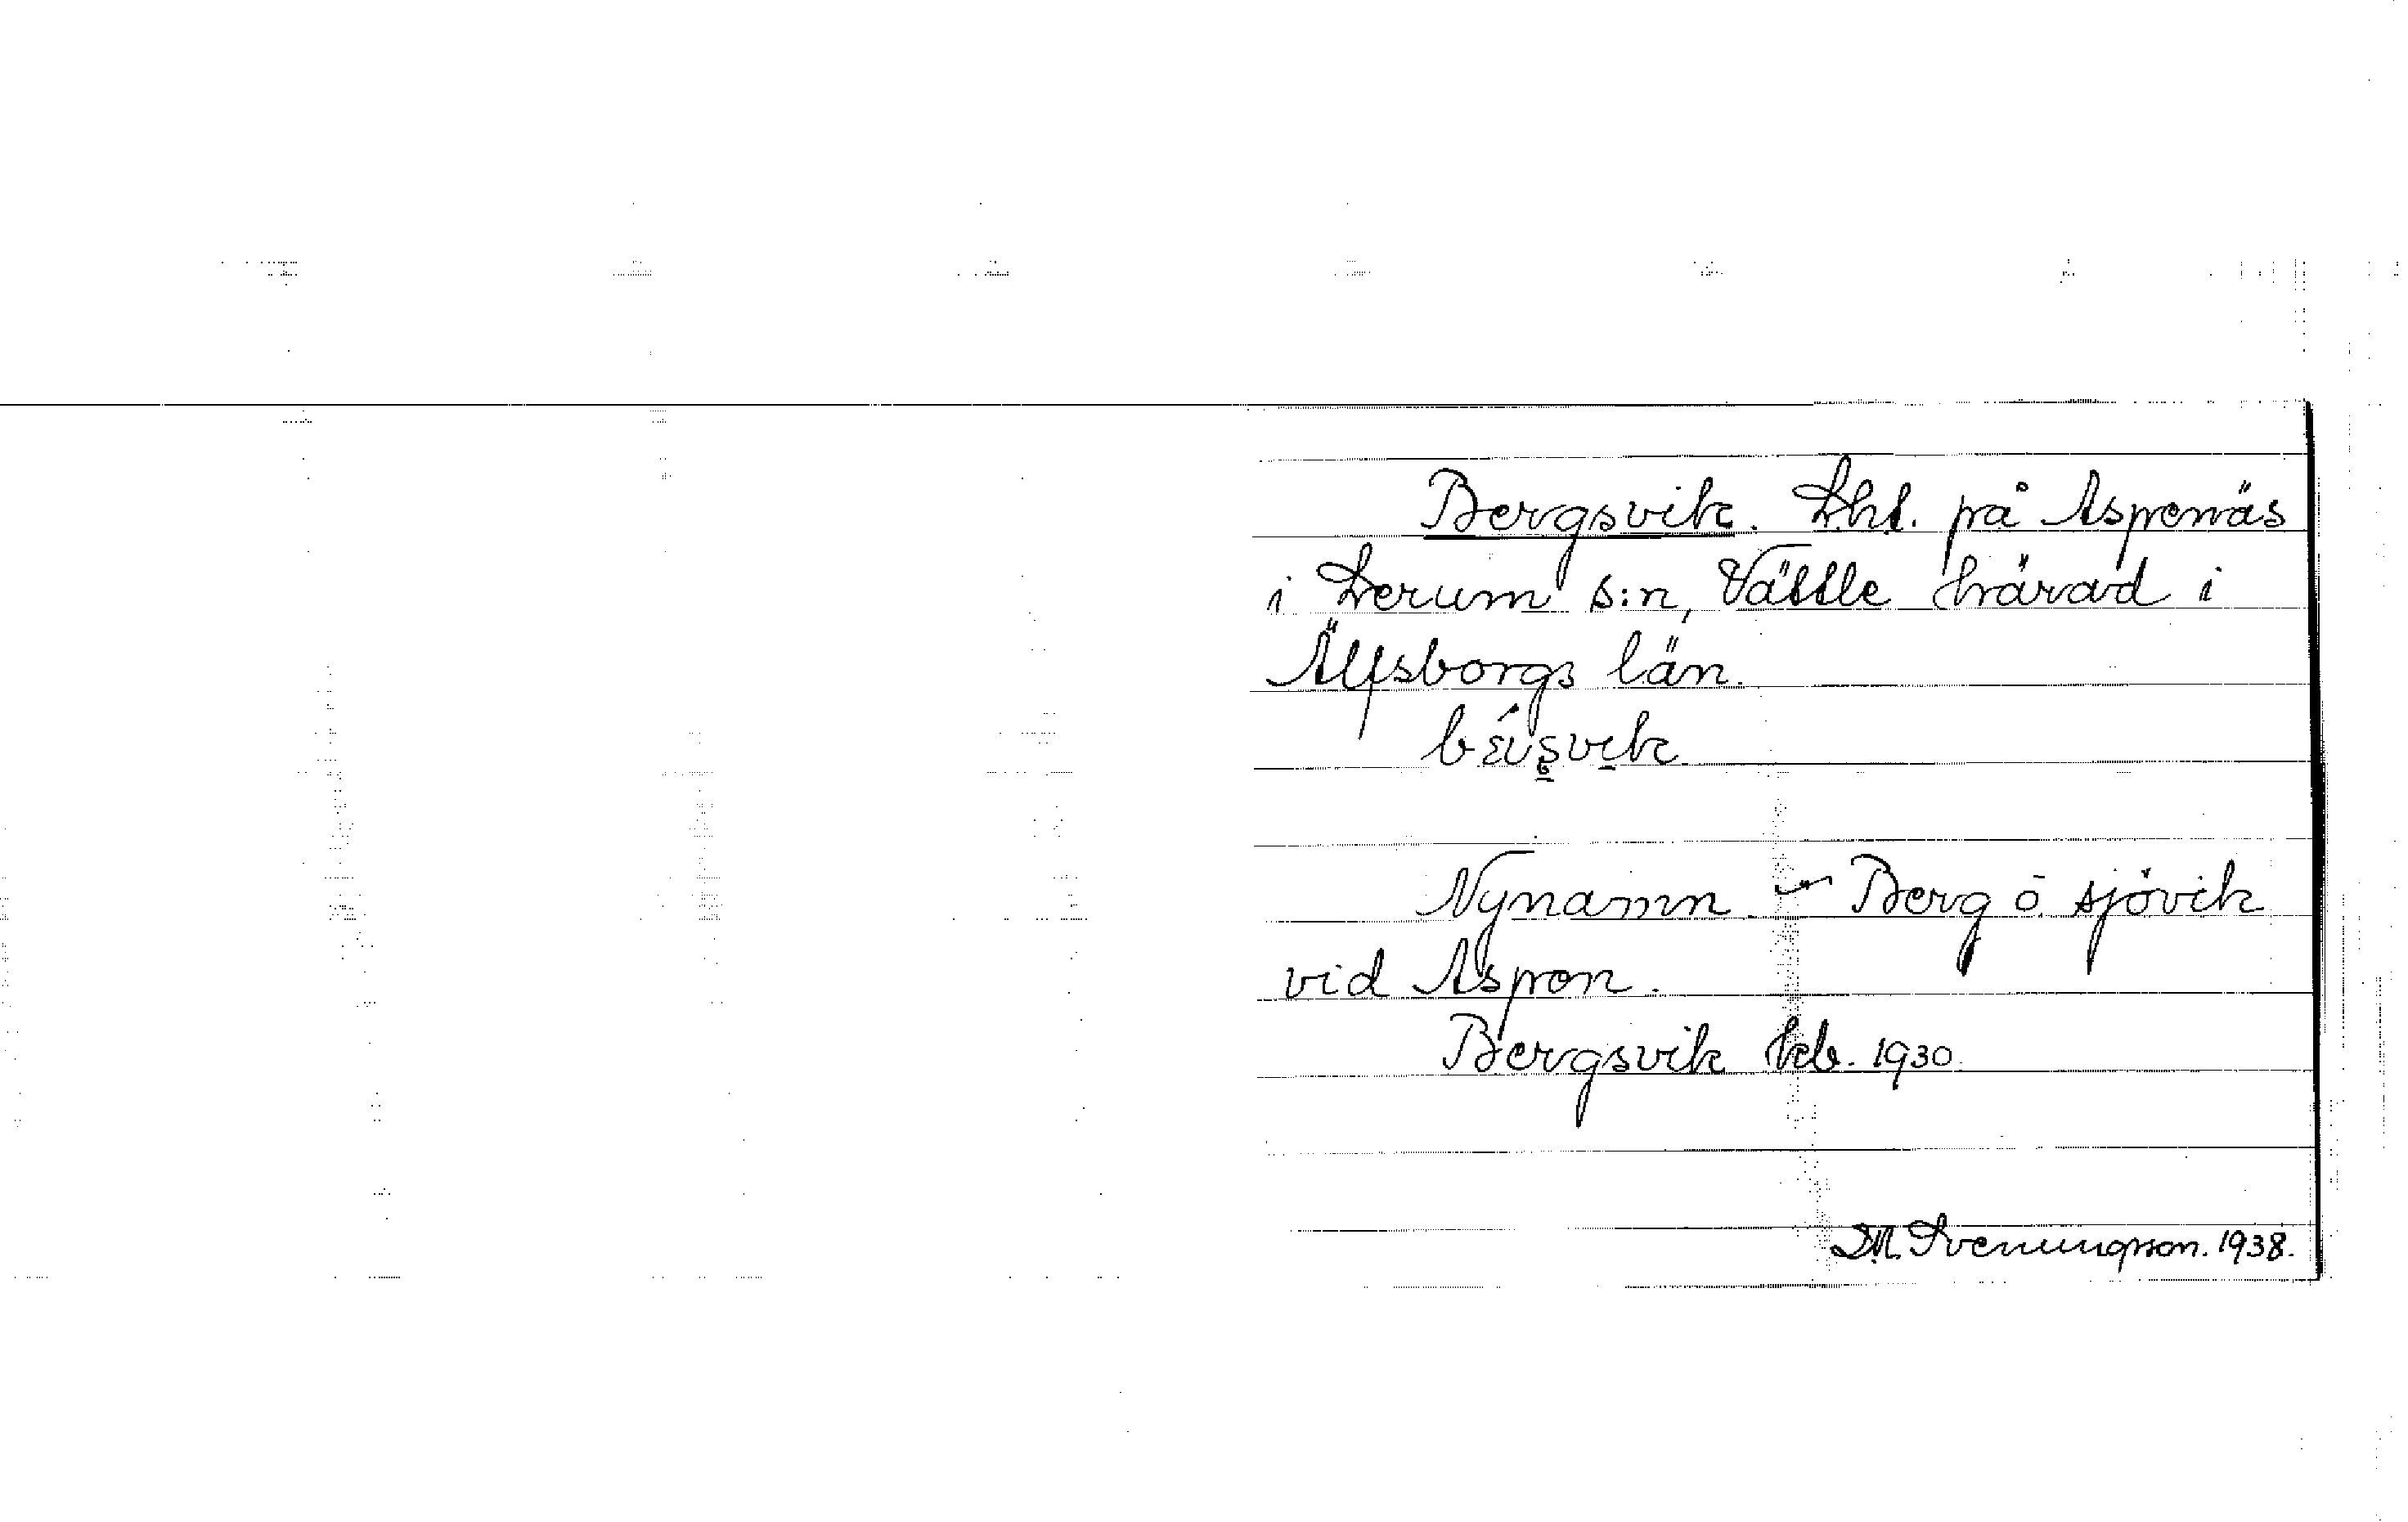 Bergsvik. Lht. på Aspenäs
i Lerum s:n, Vättle härad i
Älfsborgs län.
Nynamn. Berg o. sjövik
vid Aspen.
Bergsvik kb. 1930.
Svenungsson. 1938.